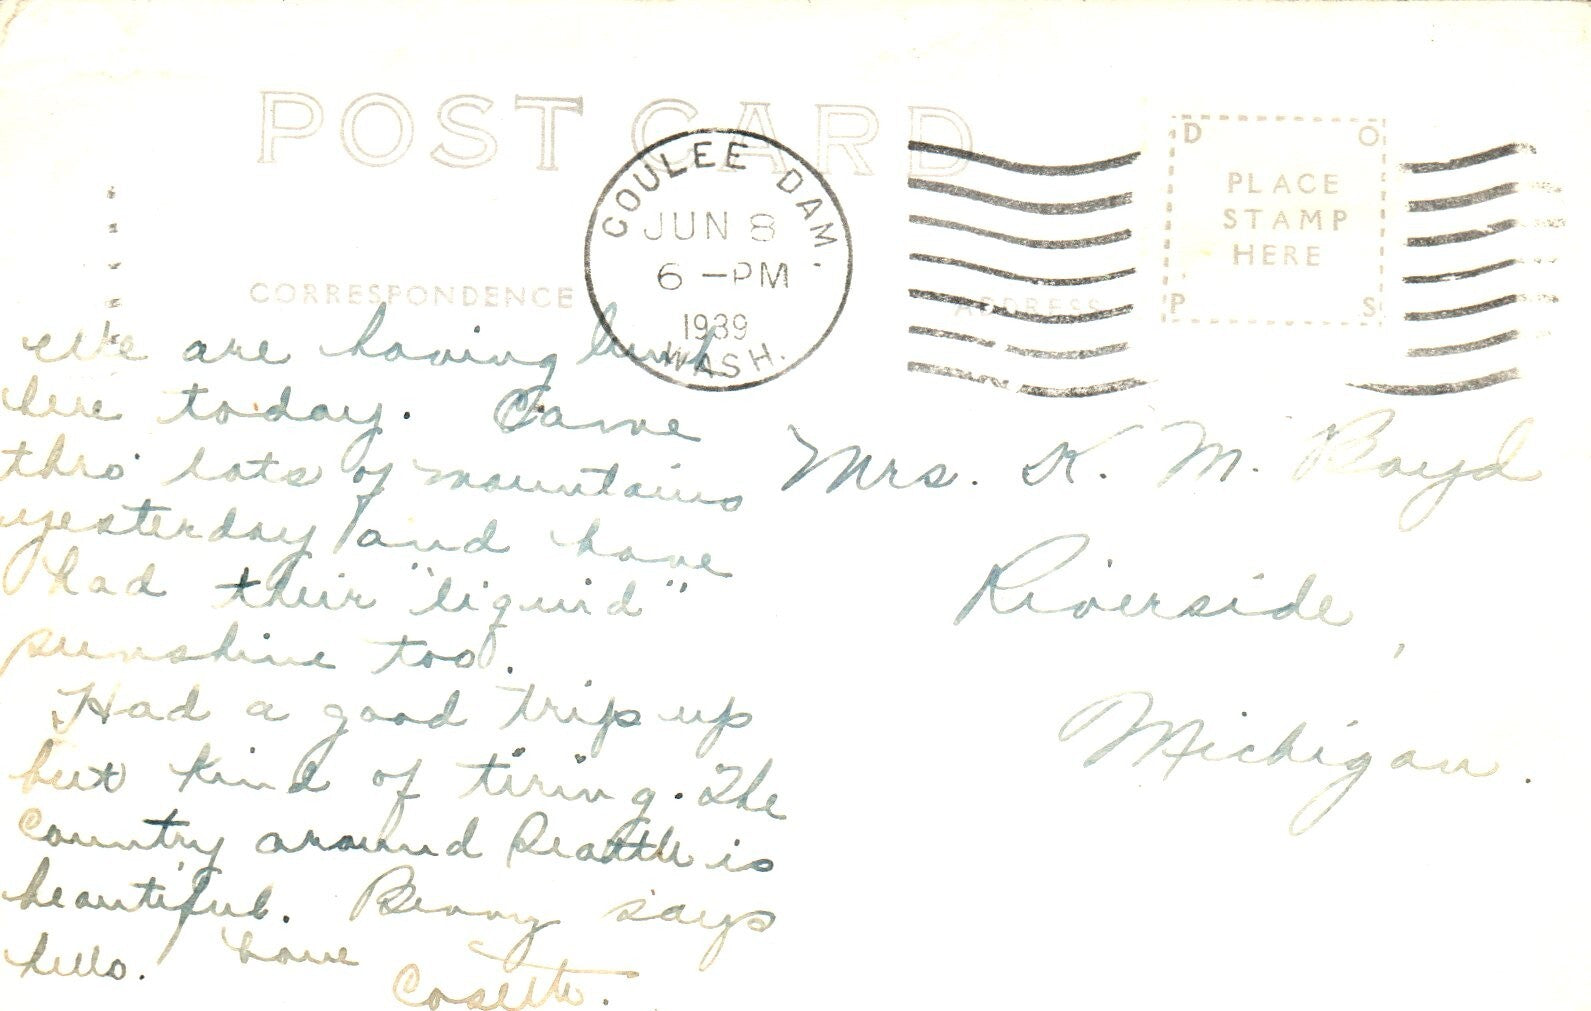 POST CARD
COULEE DAM.
JUN 8
6-PM
1939
WASH.
D O
PLACE
STAMP
HERE
P S
CORRESPONDENCE
ADDRESS
We are having lunch
here today. Came
thro' lots of mountains
yesterday and have
had their "liquid"
sunshine too.
Had a good trip up
but kind of tiring. The
country around Seattle is
beautiful. Benny says
hello. Love
Cosette.
Mrs. K. M. Boyd
Riverside,
Michigan.